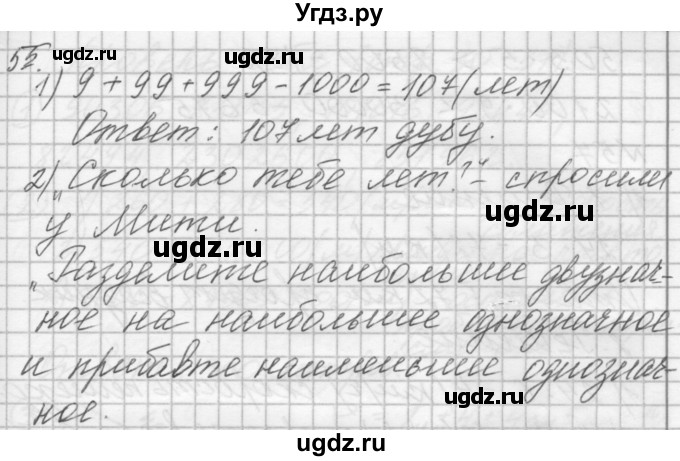 Угдз.ру
55.
ugdz.ru
ugdz.ru
1) 9 + 99 + 999 - 1000 = 107 (лет)
Ответ: 107 лет дубу.
2) „Сколько тебе лет?“ - спросили
у Мити.
ugdz.ru
ugdz.ru
„Разделите наибольшее двузнач-
ное на наибольшее однозначное
и прибавте наименьшее однознач-
ugdz.ru
ugdz.ru
ное.
ugdz.ru